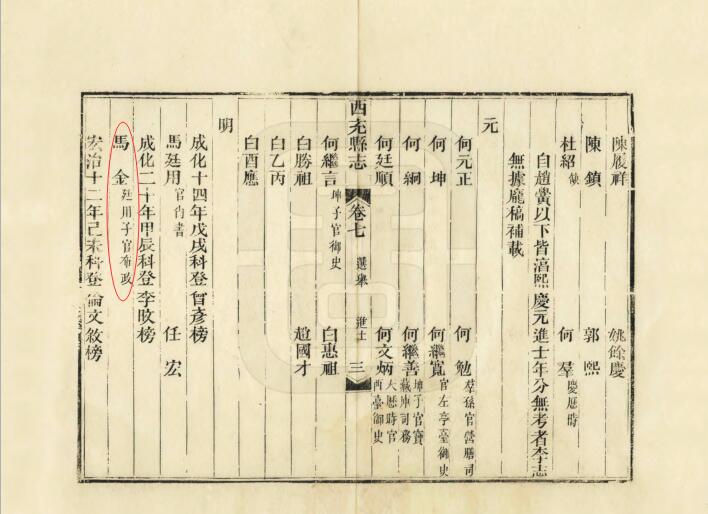 陳履祥 姚餘慶
陳鎮 郭熙
杜紹 何羣慶厯時
自趙黌以下皆淳熙慶元進士年分無考者李志
無據龐稿補載
元
何元正 何勉羣孫官營膳司
何坤 何繼寬官左亭臺御史
何絅 何繼善坤子官寶藏庫司務
何廷順 何文炳大厯時官西臺御史
西充縣志 卷七 選舉 進士 三
何繼言坤子官御史 白惠祖
白勝祖 趙國才
白乙丙
白酉應
明
成化十四年戊戌科登曾彥榜
馬廷用官尚書 任宏
成化二十年甲辰科登李旼榜
馬金廷用子官布政
宏治十二年己未科登倫文敘榜